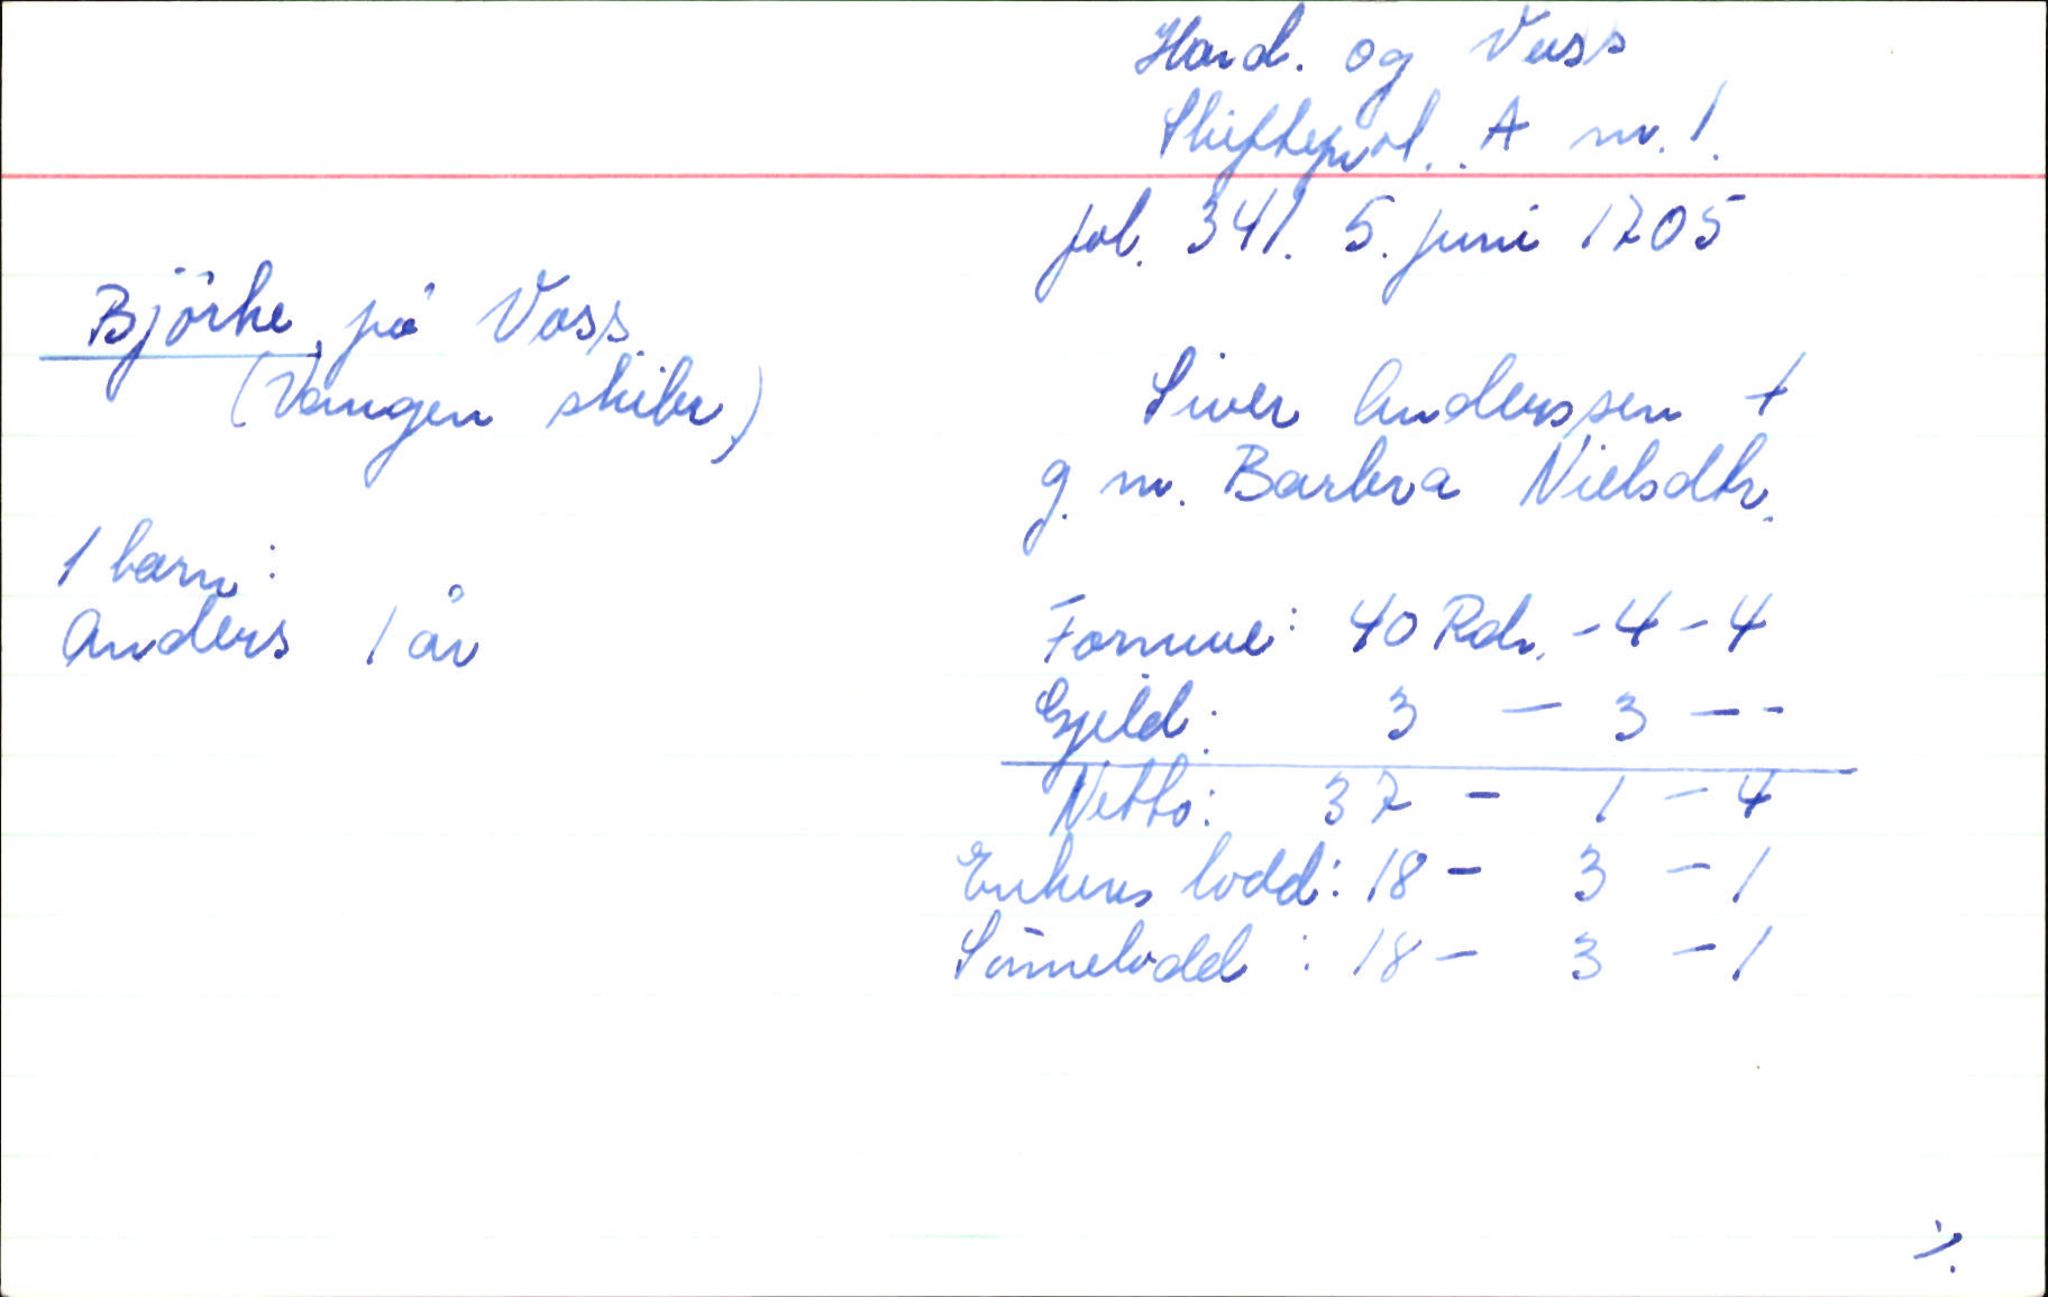 Hard. og Voss
Skifteprot. A nr. 1.
fol. 341. 5. juni 1705
Björke, på Voss.
(Vangen skibr.)
Siver Anderssen +
g. m. Barbra Nielsdtr.
1 barn:
Anders 1 år
Formue: 40 Rdr. - 4 - 4
Gjeld: 3 - 3 - -
Netto: 37 - 1 - 4
Enkens lodd: 18 - 3 - 1
Sönnelodd: 18 - 3 - 1